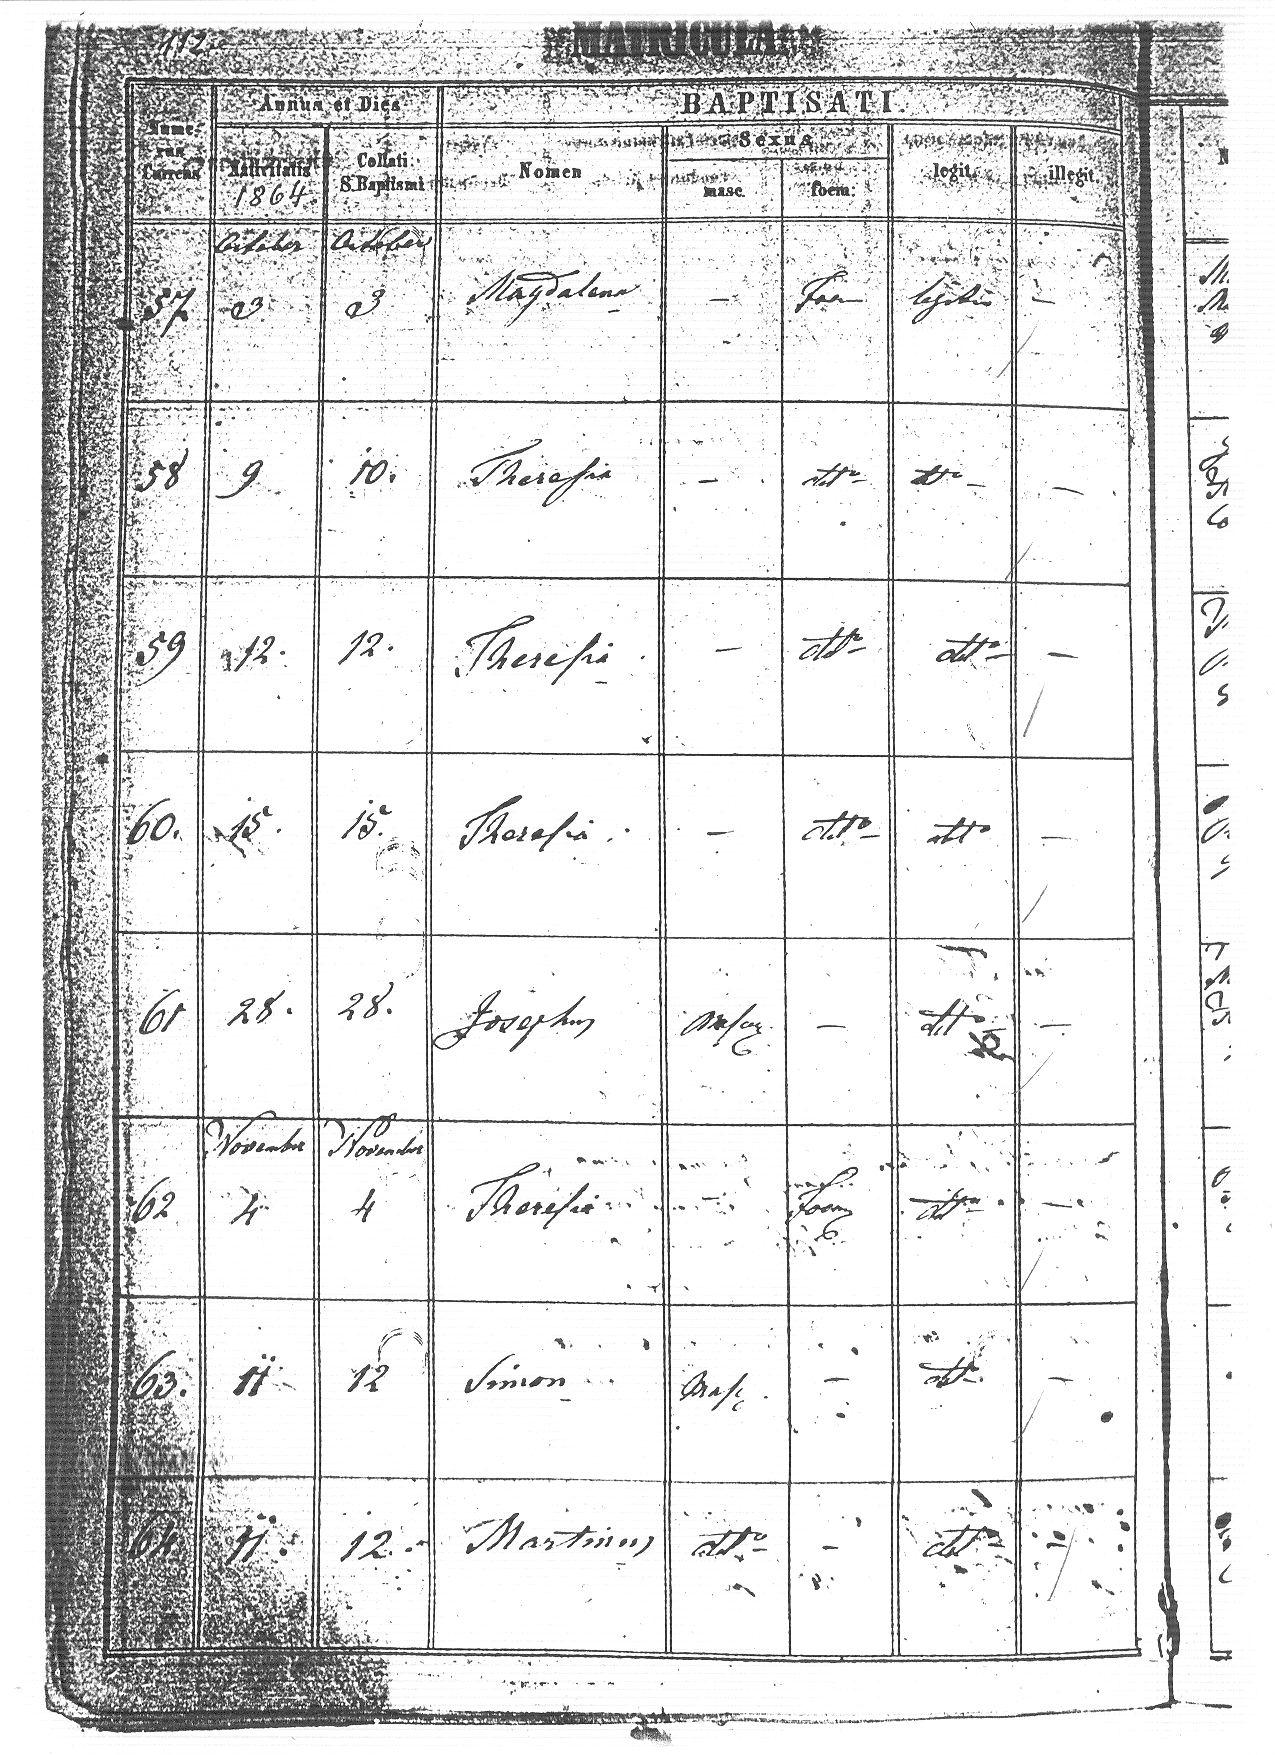 112
MATRICULA
Nume-
rus
Currens
Annus et Dies
BAPTISATI.
Nativitatis
1864
Collati
S. Baptismi
Nomen
Sexus
masc.
foem.
legit.
illegit.
October October
57 3 3 Magdalena — Foem legitim —
58 9 10. Theresia — dtto dtto —
59 12. 12. Theresia — dtto dtto —
60. 15. 15. Theresia — dtto dtto —
61 28. 28. Josephus Masc — dtto —
November November
62 4 4 Theresia — Foem dtto —
63. 11 12 Simon Masc — dtto —
64 11. 12. Martinus dtto — dtto —